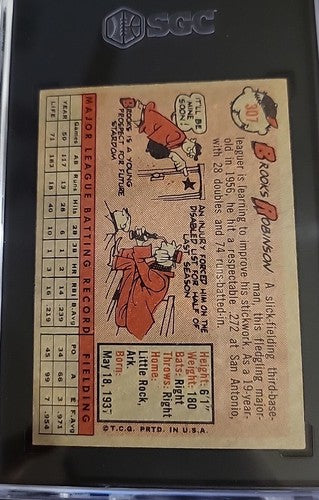 SGC
307
BROOKS ROBINSON A slick-fielding third-base-
man, this fledgling major-
leaguer is learning to improve his stickwork. As a 19-year-
old in 1956, he hit a respectable .272 at San Antonio,
with 28 doubles and 74 runs-batted-in.
IT'LL BE
MINE
SOON!
BROOKS IS A YOUNG
PROSPECT FOR FUTURE
STARDOM
AN INJURY FORCED HIM ON THE
DISABLED LIST FOR HALF OF
LAST SEASON
Height: 6'1"
Weight: 180
Bats: Right
Throws: Right
Home:
Little Rock,
Ark.
Born:
May 18, 1937
MAJOR LEAGUE BATTING RECORD FIELDING
Games AB Runs Hits 2B 3B HR RBI B.Avg. PO A E F.Avg.
YEAR 50 117 13 28 6 1 2 14 .239 34 66 3 .971
LIFE 71 183 18 40 10 1 3 16 .219 7 .954
©T.C.G. PRTD. IN U.S.A.